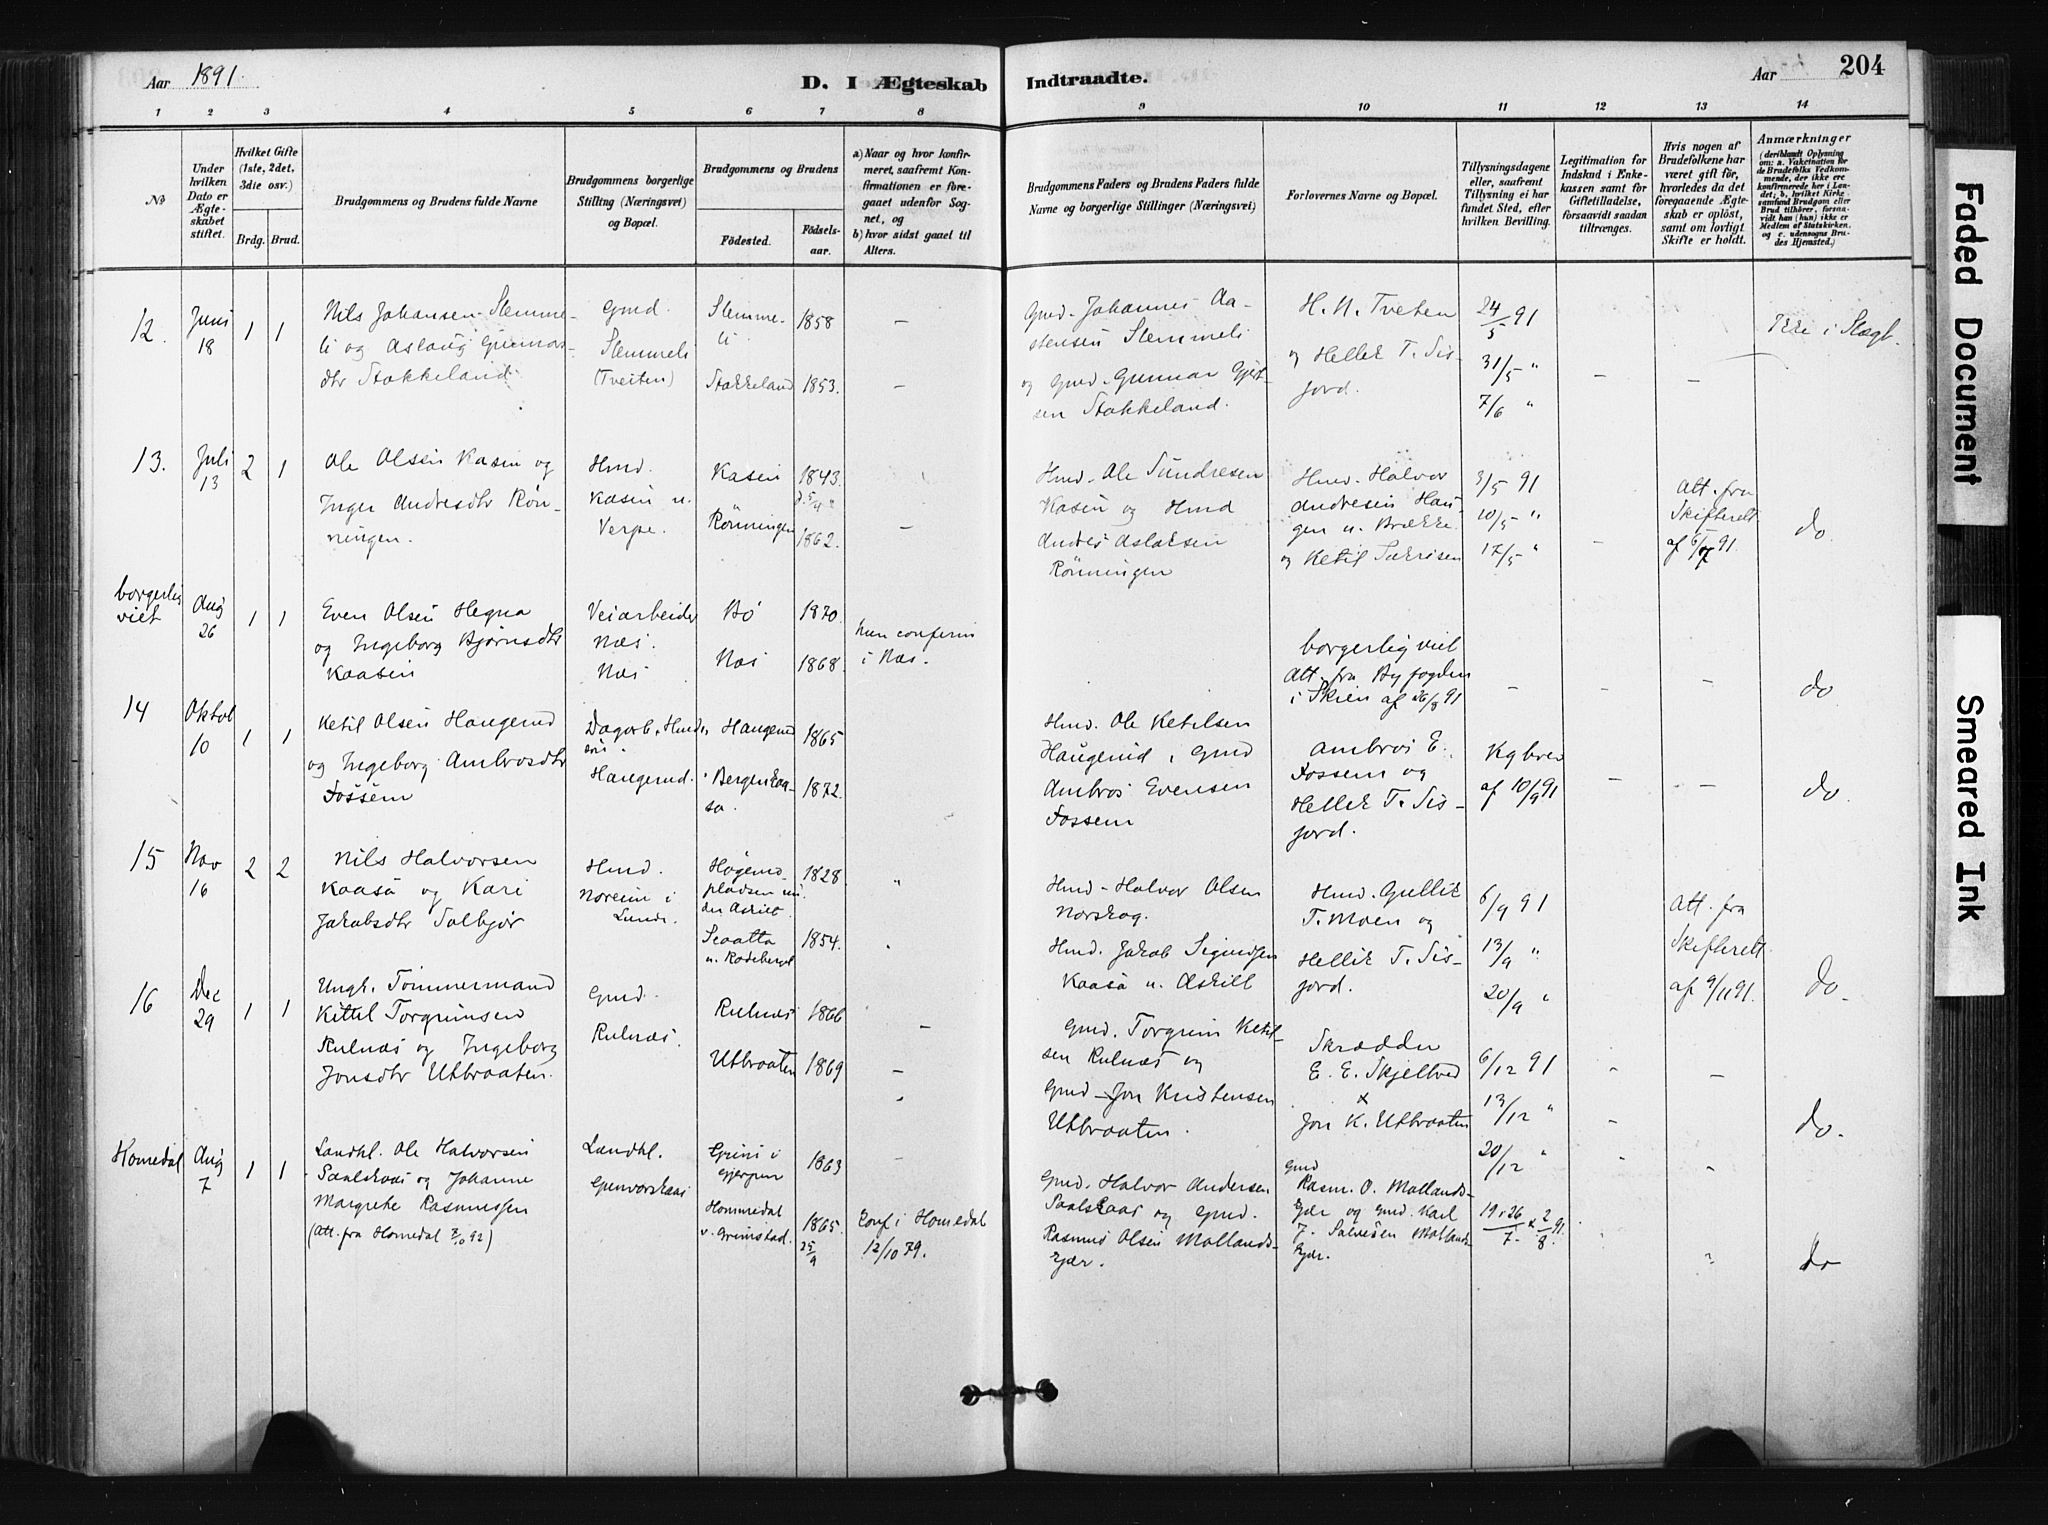 Aar 1891.
D. I Ægteskab Indtraadte.
Aar
204
1 2 3 4 5 6 7 8 9 10 11 12 13 14
No
Under hvilken Dato er Ægteskabet stiftet.
Hvilket Gifte (1ste, 2det, 3die osv.)
Brdg. Brud.
Brudgommens og Brudens fulde Navne
Brudgommens borgerlige Stilling (Næringsvei) og Bopæl.
Brudgommens og Brudens
Födested.
Födselsaar.
a) Naar og hvor konfirmeret, saafremt Konfirmationen er foregaaet udenfor Sognet, og
b) hvor sidst gaaet til Alters.
Brudgommens Faders og Brudens Faders fulde Navne og borgerlige Stillinger (Næringsvei)
Forlovernes Navne og Bopæl.
Tillysningsdagene eller, saafremt Tillysning ei har fundet Sted, efter hvilken Bevilling.
Legitimation for Indskud i Enkekassen samt for Giftetilladelse, forsaavidt saadan tiltrænges.
Hvis nogen af Brudefolkene har været gift før, hvorledes da det foregaaende Ægteskab er oplöst, samt om lovligt Skifte er holdt.
Anmærkninger
(deriblandt Oplysning om: a. Vakcination for de Brudefolks Vedkommende, der ikke ere konfirmerede her i Landet; b. hvilket Kirkesamfund Brudgom eller Brud tilhörer, forsaavidt han (hun) ikke er Medlem af Statskirken, og c. udensogns Brudes Hjemsted.)
12. Juni 18 1 1
Nils Johansen Slemme-
li og Aslaug Gunnars-
dtr Stokkeland
Gmd.
Slemmeli
(Tveiten)
Slemme-
li
1858 –
Stokkeland 1853. –
Gmd. Johannes Aa-
stensen Slemmeli
og Gmd. Gunnar Gjert-
sen Stokkeland.
H. N. Tveten
og Hellek T. Sis-
jord.
24/5 91
31/5 "
7/6 "
–
–
Ikke i Slægt.
13. Juli 13 2 1
Ole Olsen Kasin og
Inger Andresdtr Røn-
ningen.
Hmd.
Kasin u.
Verpe.
Kasin 1843.
Rönningen 1862. –
Hmd. Ole Sundresen
Kasin og Hmd
Andres Aslaksen
Rönningen
Hmd. Halvor
Andresen Hau-
gen u. Brække
og Ketil Sakrisen
3/5 91
10/5 "
17/5 "
–
Att. fra
Skifteret
af 6/7 91.
do
borgerlig
viet
Aug 26 1 1
Even Olsen Hegna
og Ingeborg Bjørnsdtr
Kaasin
Veiarbeider
Næs
Næs
Bö 1870.
Næs 1868.
hun conferm
i Næs.
borgerlig viet
Att. fra Byfogden
i Skien af 26/8 91
– – –
do
14 Oktob 10 1 1
Ketil Olsen Haugerud
og Ingeborg Ambrosdtr
Fossem
Dagarb.
Haugerud.
Haugerud 1865
Bergenkaa-
sa. 1872.
Hmd. Ole Ketilsen
Haugerud, Gmd
Ambros Evensen
Fossem
Ambros E.
Fossem og
Hellek T. Sis-
jord.
Kgbrev
af 10/9 91
– –
do.
15 Nov 16 2 2
Nils Halvorsen
Kaasa og Kari
Jakobsdtr Solbjør
Hmd.
Noreim i
Lunde.
Høgemo-
pladsen un-
der Askilt.
1828
u. Rodeberget
1854.
Hmd. Halvor Olsen
Norskog.
Hmd. Jakob Sigurdsen
Kaasa u. Askilt
Hmd. Gullik
T. Moen og
Hellik T. Sis-
jord.
6/9 91
13/9 "
20/9 "
Att. fra
Skifterett.
af 9/11 91.
do.
16 Dec 29 1 1
Ungk. Tömmermand
Kittil Torgrimsen
Rulnæs og Ingeborg
Jonsdtr Utbraaten.
Gmd.
Rulnæs.
Rulnæs 1866 –
Utbraaten 1869 –
Gmd. Torgrim Ketil-
sen Rulnæs og
Gmd. Jon Kristensen
Utbraaten.
Skrædder
E. E. Skjeltved
x
Jon K. Utbraaten
6/12 91
13/12 "
20/12 "
–
do.
Homedal Aug 7 1 1
Landhl. Ole Halvorsen
Saalskaas og Johanne
Margrethe Rasmussen
(Att. fra Homedal 7/10 92)
Landhl.
Gjenvorskaas
Grini i
Gjerpen
1863 –
Hommedal
v. Grimstad.
1865.
25/9
Conf i Homedal
12/10 79.
Gmd. Halvor Andersen
Saalskaas og Gmd.
Rasmus Olsen Mollands-
kjær.
Gmd
Rasm. O. Mollands-
kjær og Gmd. Karl
J. Salvesen Mollands-
kjær.
19 & 26/7 & 2/8 91.
do
Faded Document
Smeared Ink